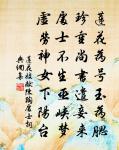 蓮花為号玉為腮
珍重尚書遣妾來
處士不生巫峽夢
虛勞神女下陽台
蓮花妓獻陳陶處士